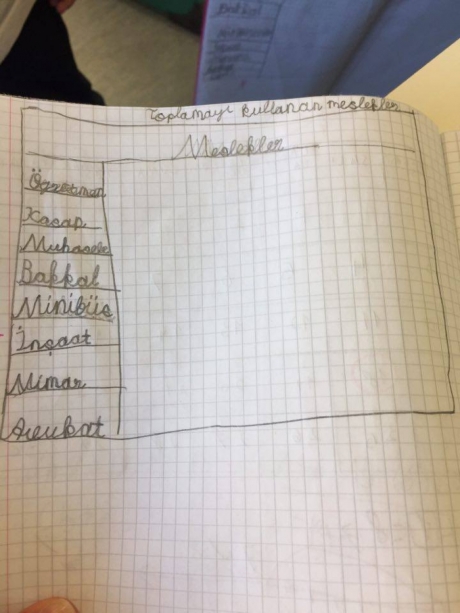 Toplamayı kullanan meslekler
Meslekler
Öğretmen
Kasap
Muhasebe
Bakkal
Minibüs
İnşaat
Mimar
Avukat
Bakkal